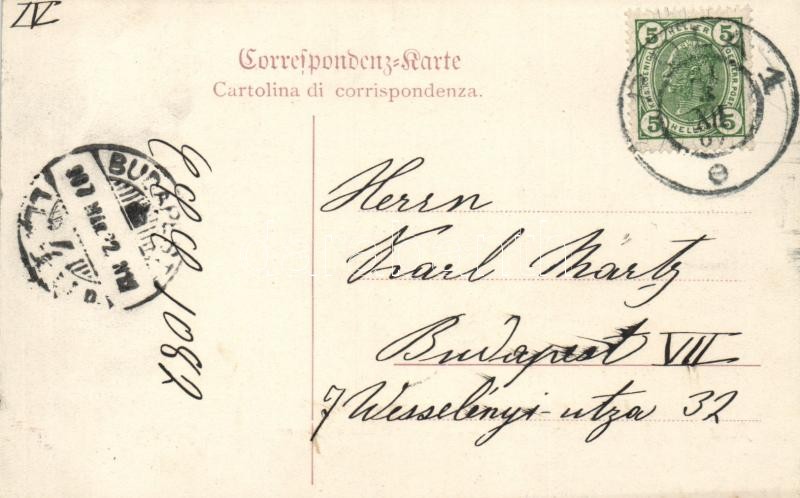 IV
Correspondenz-Karte
Cartolina di corrispondenza.
5 HELLER 5
5 HELLER 5
BUDAPEST
907
Herrn
Karl Märtz
Budapest VII
7 Wesselényi-utza 32
1082